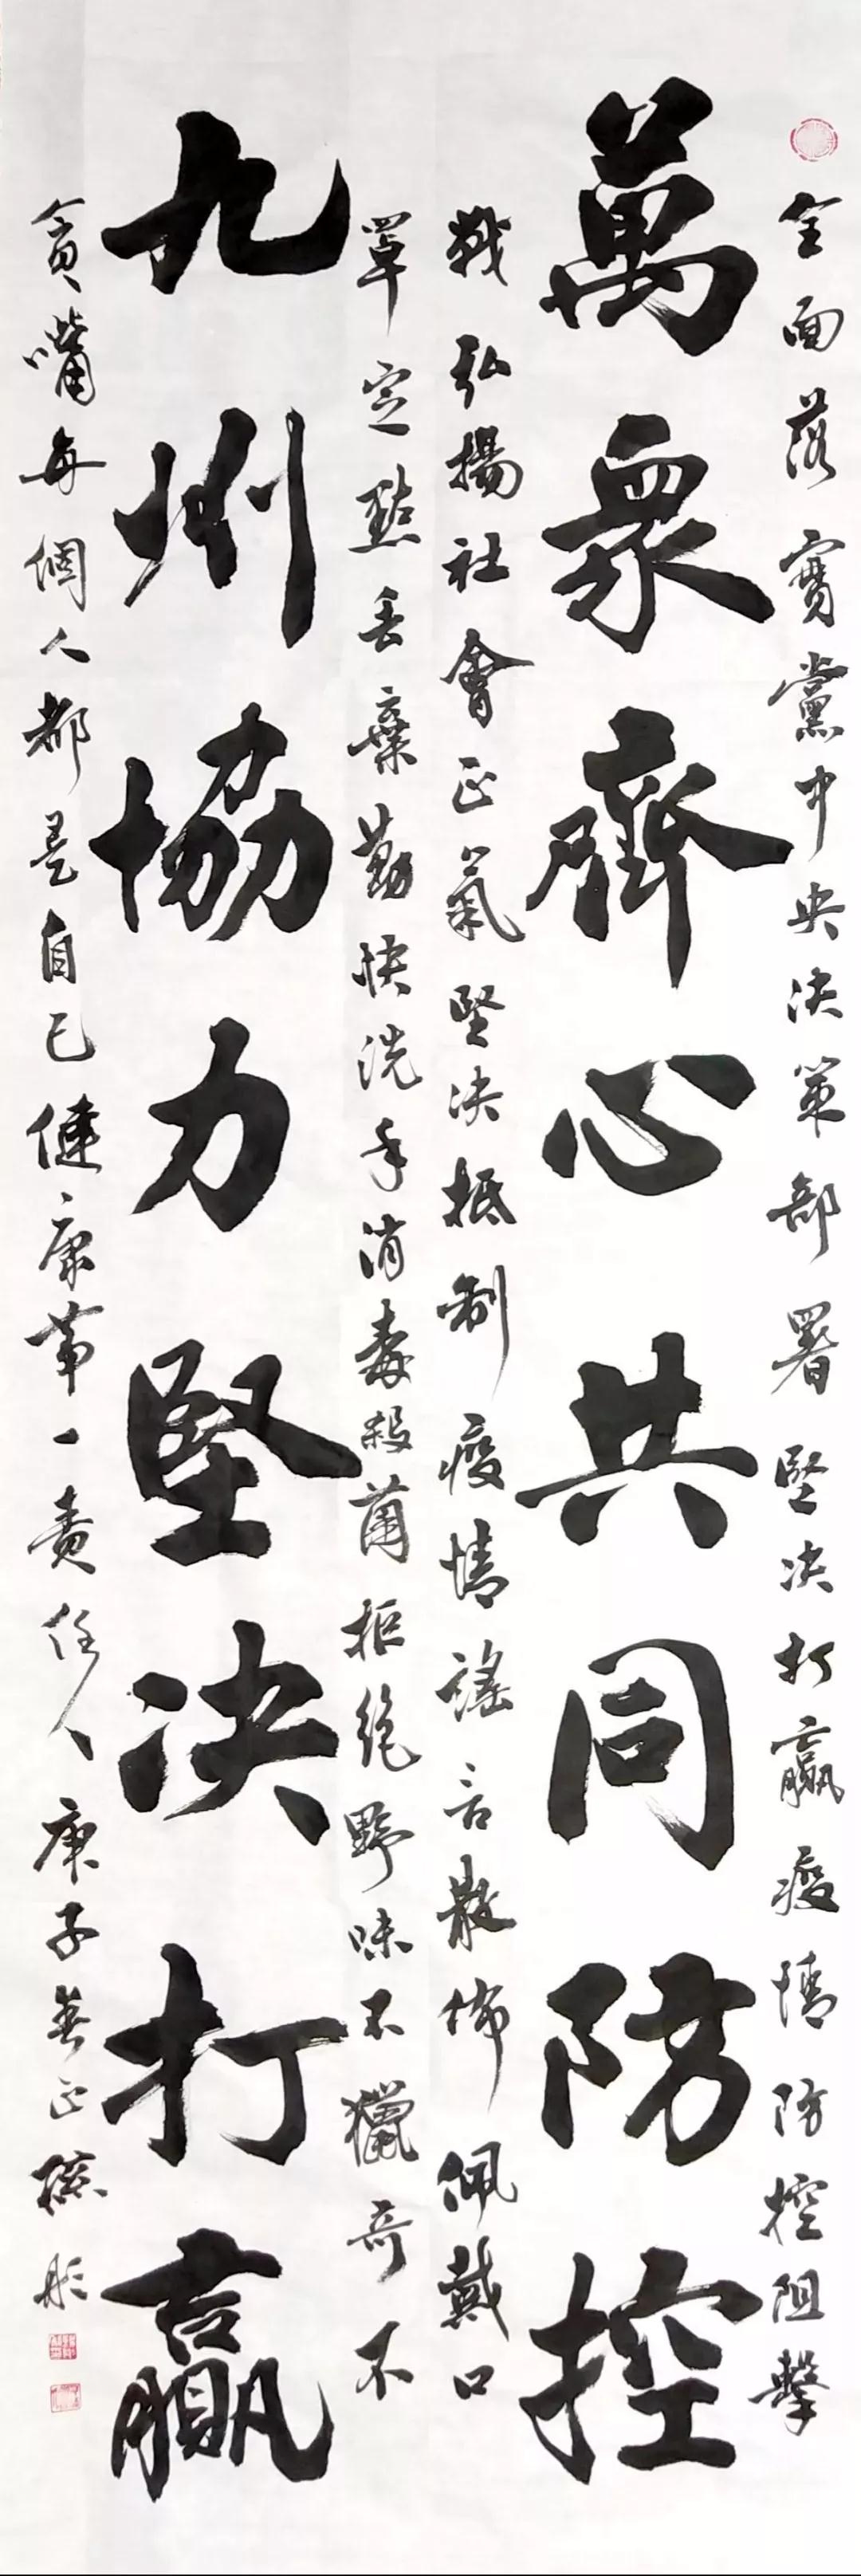 全面落實黨中央决策部署堅决打贏疫情防控阻擊
萬衆齊心共同防控
戰弘揚社會正氣堅决抵制疫情謠言散佈佩戴口
罩定點丢棄勤快洗手消毒殺菌拒絶野味不獵奇不
九州協力堅决打贏
貪嘴每個人都是自己健康第一責任人庚子春正彤